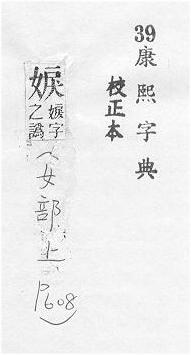 39 康熙字典
校正本
字之譌
(女部上 P608)